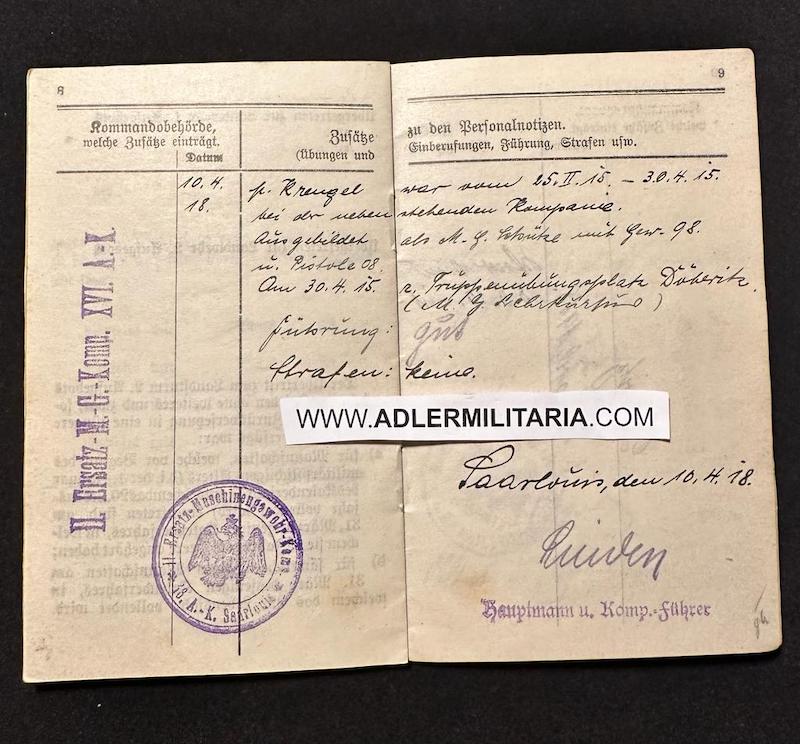 8
Kommandobehörde,
welche Zusätze einträgt.
Datum
Zusätze
(Übungen und
10.4.
18.
p. Krengel
bei der neben
Ausgebildet
u. Pistole 08.
Am 30.4.15.
Führung:
Strafen:
II. Ersatz-M.-G.-Komp. XVI. A.-K.
II. Ersatz-Maschinengewehr-Komp.
A.-K. Saarlouis
9
zu den Personalnotizen.
Einberufungen, Führung, Strafen usw.
war vom 25.II.15. – 30.4.15.
stehenden Kompanie.
als M. G. Schütze mit Gew. 98.
z. Truppenübungsplatz Döberitz.
(M. G. Lehrkursus)
gut
keine.
WWW.ADLERMILITARIA.COM
Saarlouis, den 10.4.18.
Hauptmann u. Komp.-Führer